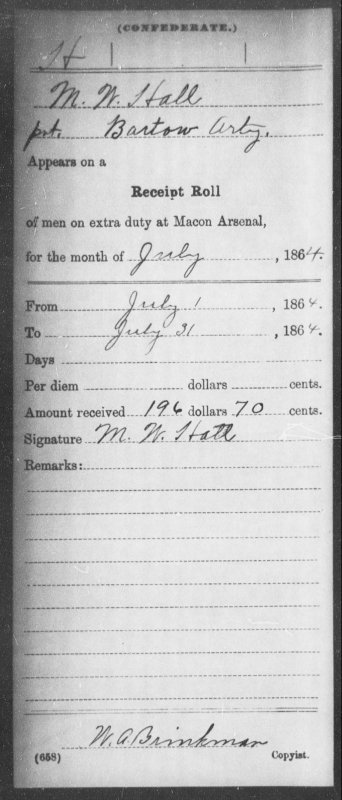 (CONFEDERATE.)
H
M. W. Hall
pvt. Bartow Arty.
Appears on a
Receipt Roll
of men on extra duty at Macon Arsenal,
for the month of July, 1864.
From July 1, 1864.
To July 31, 1864.
Days
Per diem dollars cents.
Amount received 196 dollars 70 cents.
Signature M. W. Hall
Remarks:
W. A. Brinkman
(658) Copyist.